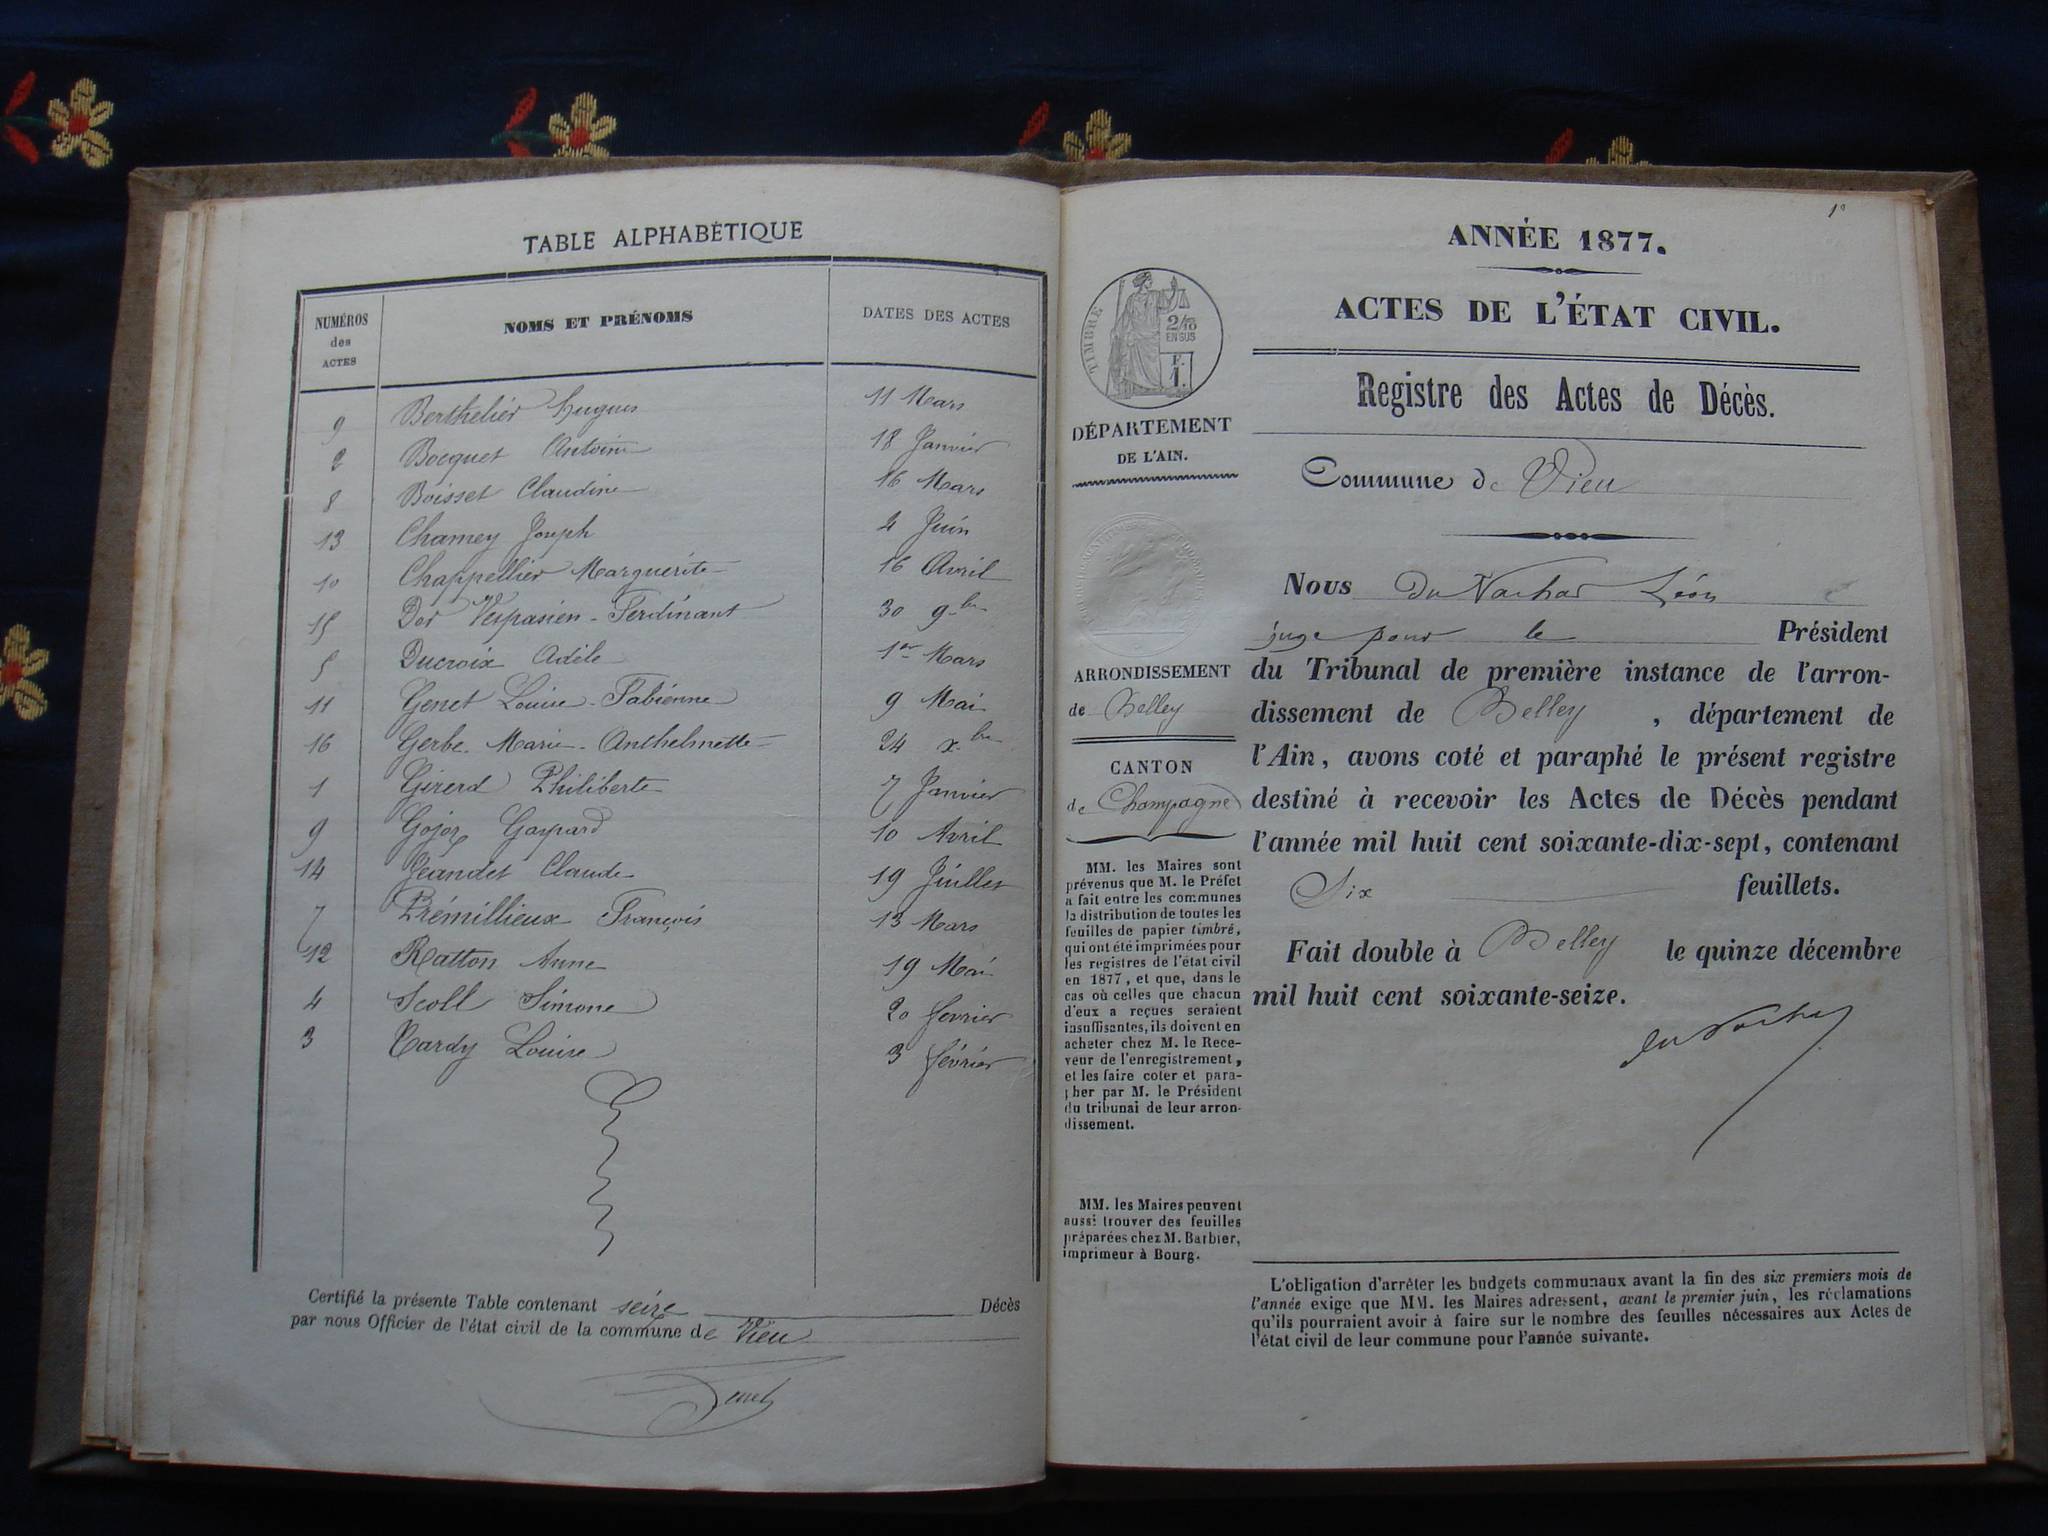 TABLE ALPHABÉTIQUE
NUMÉROS des ACTES NOMS ET PRÉNOMS DATES DES ACTES
9 Berthelier Hugues 11 Mars
2 Bocquet Antoine 18 Janvier
8 Boisset Claudine 16 Mars
13 Charney Joseph 4 Juin
10 Chappellier Marguerite 16 Avril
15 Dor Vespasien-Ferdinant 30 9bre
5 Ducroix Adèle 1er Mars
11 Genet Louise-Fabienne 9 Mai
16 Gerbe Marie-Anthelmette 24 xbre
1 Girerd Philiberte 7 Janvier
9 Gojoz Gaspard 10 Avril
14 Jeandet Claude 19 Juillet
7 Prémillieux François 13 Mars
12 Ratton Anne 19 Mai
4 Scoll Simone 20 février
3 Tardy Louise 3 février
Certifié la présente Table contenant seize Décès
par nous Officier de l'état civil de la commune de Vieu
Genet
1e
ANNÉE 1877.
ACTES DE L'ÉTAT CIVIL.
Registre des Actes de Décès.
Commune de Vieu
Nous Du Nachat Léon
juge pour le Président
du Tribunal de première instance de l'arron-
dissement de Belley, département de
l'Ain, avons coté et paraphé le présent registre
destiné à recevoir les Actes de Décès pendant
l'année mil huit cent soixante-dix-sept, contenant
Six feuillets.
Fait double à Belley le quinze décembre
mil huit cent soixante-seize.
TIMBRE
2/10
EN SUS
F.
1.
DÉPARTEMENT
DE L'AIN.
ARRONDISSEMENT
de Belley
CANTON
de Champagne
MM. les Maires sont
prévenus que M. le Préfet
a fait entre les communes
la distribution de toutes les
feuilles de papier timbré,
qui ont été imprimées pour
les registres de l'état civil
en 1877, et que, dans le
cas où celles que chacun
d'eux a reçues seraient
insuffisantes, ils doivent en
acheter chez M. le Rece-
veur de l'enregistrement,
et les faire coter et para-
pher par M. le Président
du tribunal de leur arron-
dissement.
MM. les Maires peuvent
aussi trouver des feuilles
préparées chez M. Barbier,
imprimeur à Bourg.
L'obligation d'arrêter les budgets communaux avant la fin des six premiers mois de
l'année exige que MM. les Maires adressent, avant le premier juin, les réclamations
qu'ils pourraient avoir à faire sur le nombre des feuilles nécessaires aux Actes de
l'état civil de leur commune pour l'année suivante.